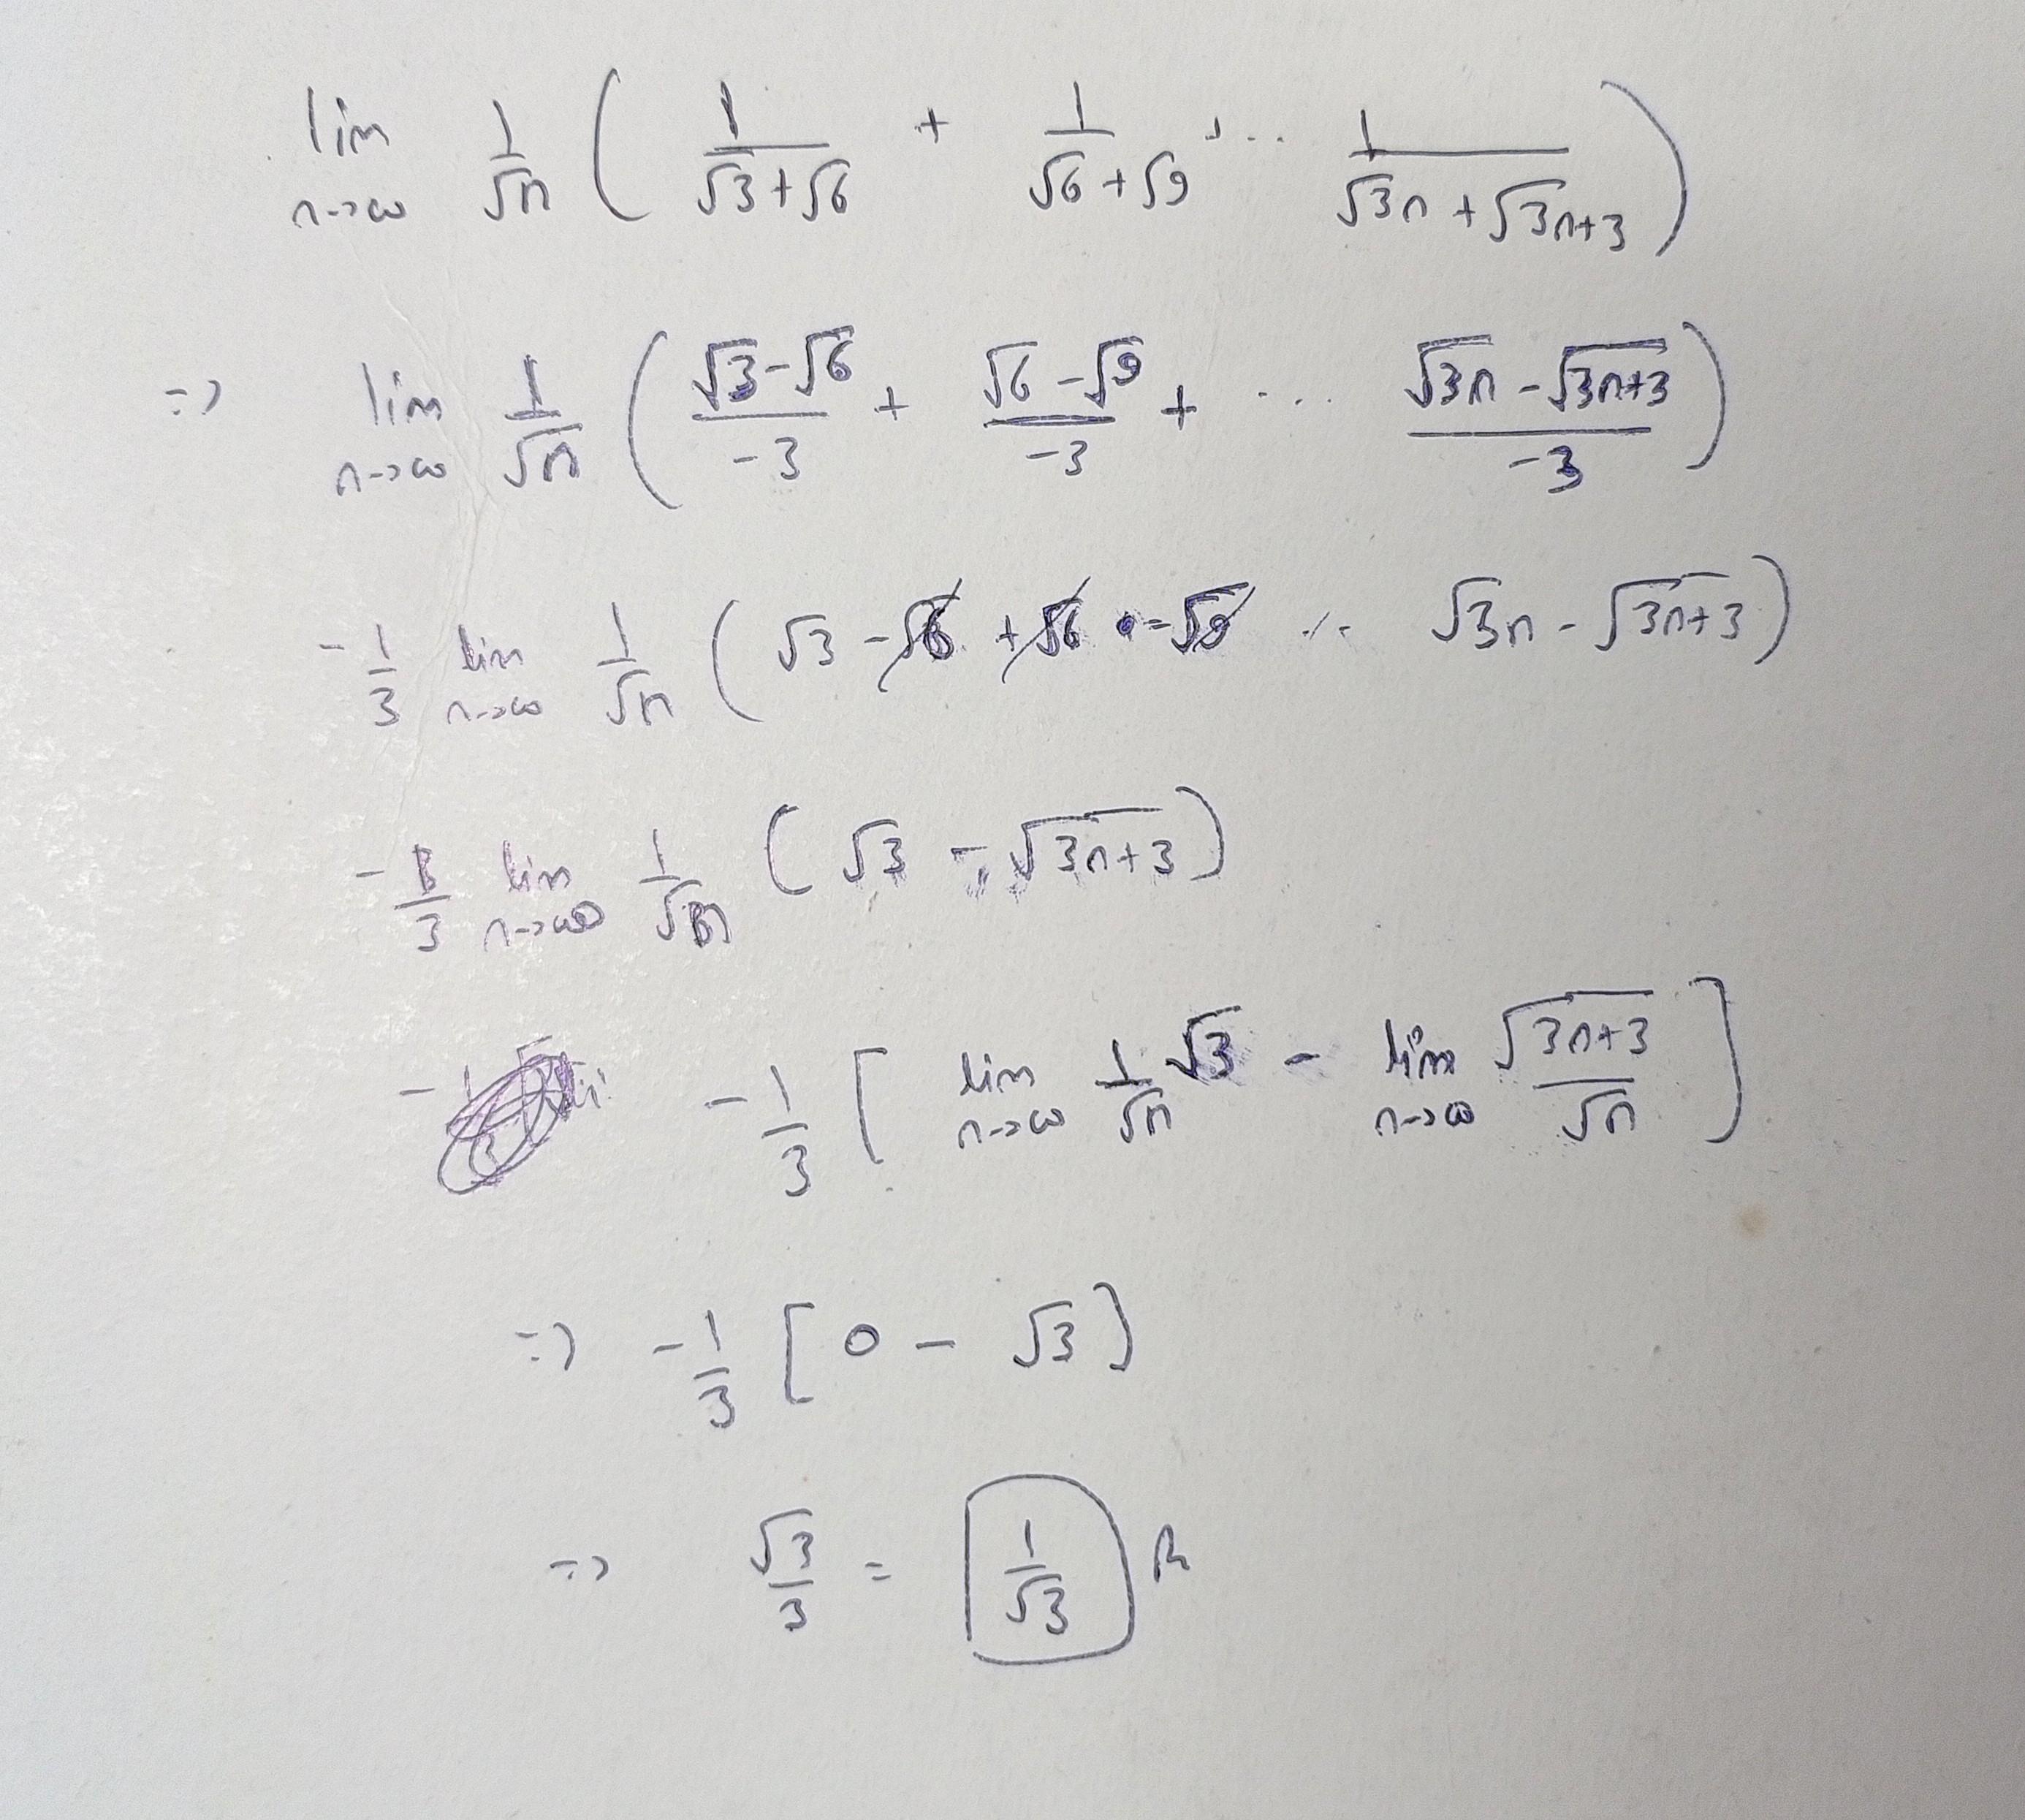 lim n→∞ 1/√n ( 1/(√3+√6) + 1/(√6+√9) + ... 1/(√3n + √3n+3) )
⇒ lim n→∞ 1/√n ( (√3-√6)/-3 + (√6-√9)/-3 + ... (√3n - √3n+3)/-3 )
-1/3 lim n→∞ 1/√n ( √3 - √6 + √6 - √9 ... √3n - √3n+3 )
-1/3 lim n→∞ 1/√n ( √3 - √3n+3 )
-1/3 [ lim n→∞ 1/√n √3 - lim n→∞ √3n+3/√n ]
⇒ -1/3 [ 0 - √3 ]
⇒ √3/3 = 1/√3